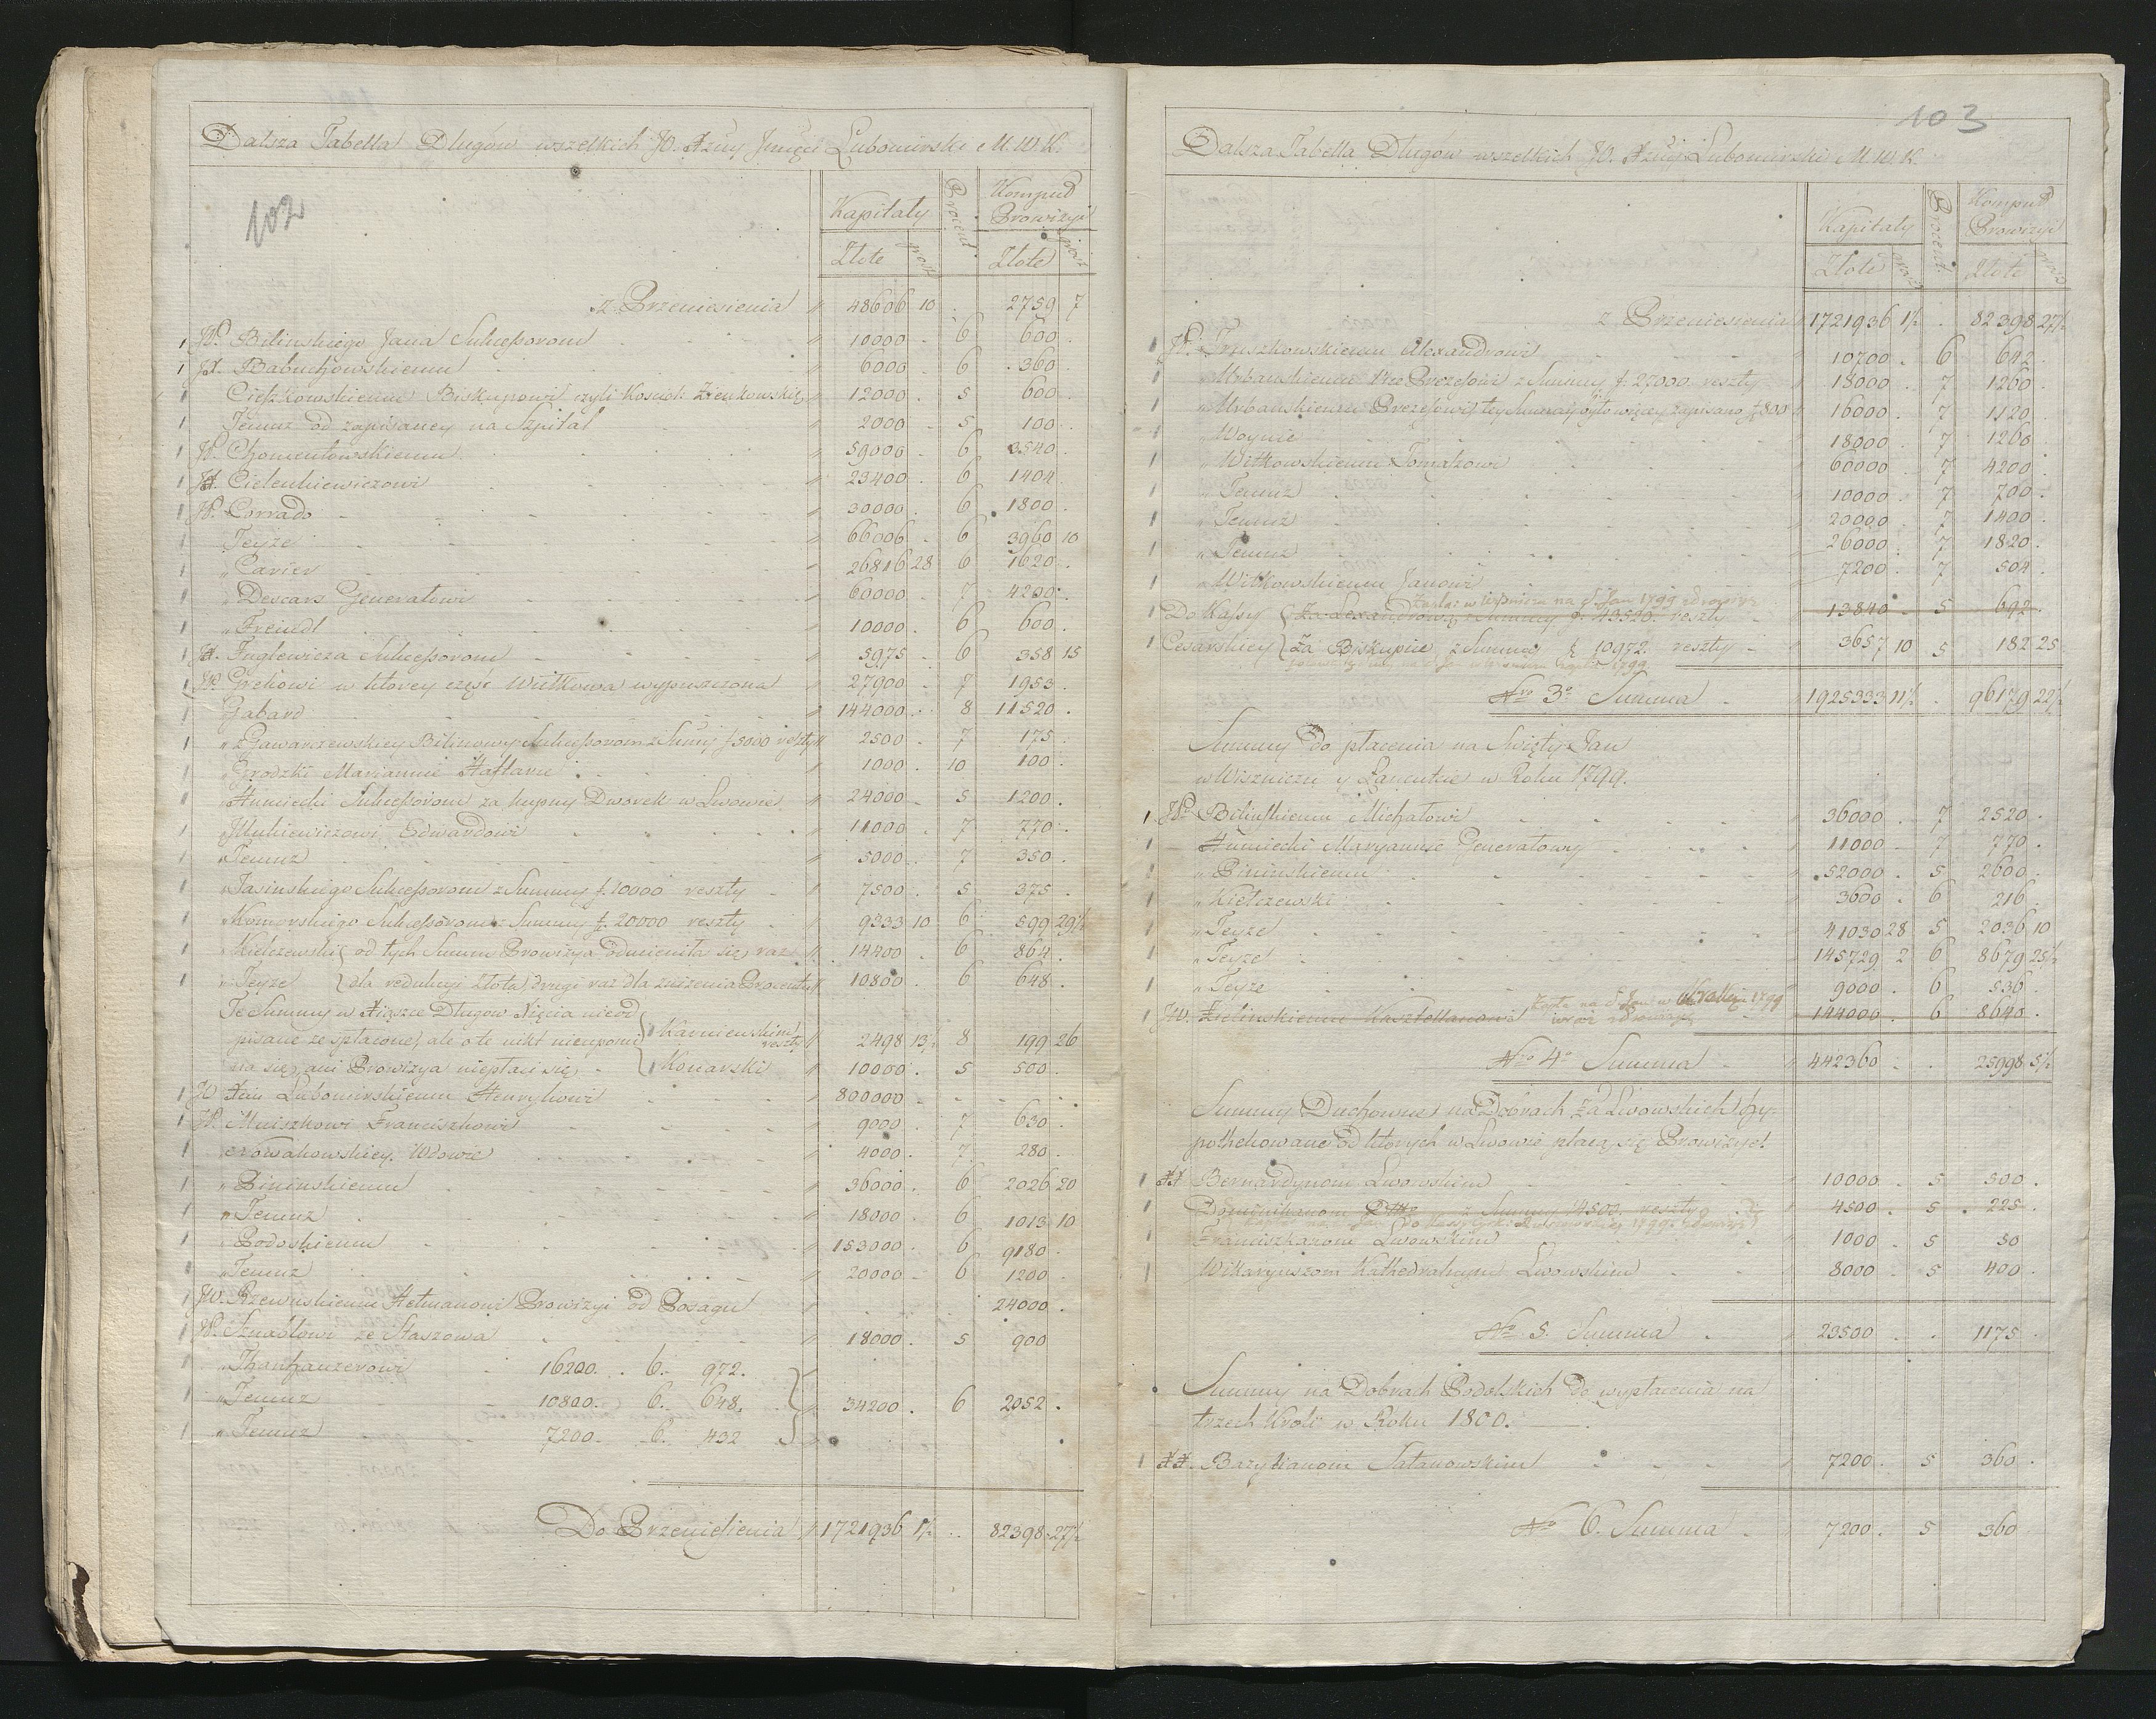 Dalsza Tabella Długow wszelkich JO. Xżny Jmści Lubomirski M.W.K.
102
Kapitały Procent Komput Prowizyi
Złote grosz Złote grosz
z Przeniesienia " 48606 10 . 2759 7
1 W. Bilinskiego Jana Sukceſsorom " 10000 . 6 600 .
1 JX. Babuchowskiemu " 6000 . 6 360 .
1 Cieſzkowskiemu Biskupowi czyli Kościoł. " 12000 . 5 600 .
1 Temuz od zapisaney na Szpital " 2000 . 5 100 .
1 W. Chomentowskiemu " 59000 . 6 3540 .
1 JX. Cielenkiewiczowi " 23400 . 6 1404 .
1 W. Corrado " 30000 . 6 1800 .
1 Teyże " 66006 . 6 3960 10
1 " Carier " 26816 28 6 1620 .
1 " Descars Generałowi " 60000 . 7 4200 .
1 " Freindl " 10000 . 6 600 .
1 X. Fuglewicza Sukceſsorom " 5975 . 6 358 15
1 W. Grekowi w ktorey częśc Wiitkowa wypuszczona " 27900 . 7 1953 .
1 Gabard " 144000 . 8 11520 .
1 " z Gawarzewskiey Bilinowy Sukceſsorom z Sumy f. 5000 reszty " 2500 . 7 175 .
1 " Grodzki Mariannie " 1000 . 10 100 .
1 " Humiecki Sukceſsorom za kupny Dworek w Lwowie " 24000 . 5 1200 .
1 Edwardowi " 11000 . 7 770 .
1 " Temuz " 5000 . 7 350 .
1 " Jasinskiego Sukceſsorom z Summy f. 10000 reszty " 7500 . 5 375 .
1 " Komorskiego Sukceſsorom z Summy f. 20000 reszty " 9333 10 6 599 29½
1 " Kielczewski od tych Summ Prowizya odmieniła się raz " 14400 . 6 864 .
1 " Teyże dla redukcyi złota, drugi raz dla zniżenia Procentu " 10800 . 6 648 .
Te Summy w Xiążce Długow Xięcia nieod
pisane ze spłacone, ale o te nikt nieupomi 1 Karniewskim reszty " 2498 13½ 8 199 26
na się, ani Prowizya niepłaci się 1 Konarski " 10000 . 5 500 .
1 JO Xciu Lubomirskiemu Henrykowi " 800000 . . . .
1 W. Mniszkowi Franciszkowi " 9000 . 7 630 .
1 Nowakowskiey Wdowie " 4000 . 7 280 .
1 " Pininskiemu " 36000 . 6 2026 20
1 " Temuz " 18000 . 6 1013 10
1 " Podoskiemu " 153000 . 6 9180 .
1 " Temuz " 20000 . 6 1200 .
1 JW. Rzewuskiemu Hetmanowi Prowizyi od Posagu " . . . 24000 .
1 W. ze Staszowa " 18000 . 5 900
1 " Thanhauzerowi 16200 . 6. 972.
1 " Temuz 10800. 6. 648. " 34200 . 6 2052 .
1 " Temuz 7200. 6. 432
Do Przenieſienia " 1721936 1½ . 82398 27½
103
Dalsza Tabella Długow wszelkich JO. Xżny Lubomirski M.W.K.
Kapitały Procent Komput Prowizyi
Złote grosz Złote grosz
z Przeniesienia " 1721936 1½ . 82398 27½
1 W. Truszkowskiemu Alexandrowi " 10700 . 6 642 .
1 " Urbanskiemu Vice Prezeſowi z Summy f. 27000 reszty " 18000 . 7 1260 .
1 " Urbanskiemu Prezeſowi tey Summy było więcey zapisano f. 800 " 16000 . 7 1120 .
1 " Woynie " 18000 . 7 1260 .
1 " Witkowskiemu Tomaſzowi " 60000 . 7 4200 .
1 " Temuz " 10000 . 7 700 .
1 " Temuz " 20000 . 7 1400 .
1 " Temuz " 26000 . 7 1820 .
1 " Witkowskiemu Janowi " 7200 . 7 504 .
w Wisniczu na S. Jan 1799
1 Do Kaſsy Za Lexandrow. z Summy f. 43520. reszty 13840 . 5 692 .
1 Cesarskiey Za Biskupice z Summy f. 10972. reszty 3657 10 5 182 25
1799
Nro 3o Summa 1925333 11½ . 96179 22½
Summy do płacenia na Swięty Jan
w Wiszniczu y Łancutcie w Roku 1799.
1 W. Bilinſkiemu Michałowi 36000 . 7 2520 .
1 Humiecki Maryannie Generałowy 11000 . 7 770 .
1 " Pininskiemu 52000 . 5 2600 .
1 " Kielczewski 3600 . 6 216 .
1 " Teyże 41030 28 5 2036 10
1 " Teyże 145729 2 6 8679 25½
1 " Teyże 9000 . 6 536 .
na S. Jan w 1799
1 JW. Zielinskiemu Kasztellanowi 144000 . 6 8640 .
Nro 4o Summa " 442360 . . 25998 5½
Summy Duchowne na Dobrach za Lwowskich hy-
pothekowane od ktorych w Lwowie płacą się Prowizye.
1 XX Bernardynom Lwowskim " 10000 . 5 500 .
1 Dominikanom z Summy 4500. reszty " 4500 . 5 225 .
1799
1 Franciszkanom Lwowskim " 1000 . 5 50
1 Wikaryuszom Kathedralnym Lwowskim " 8000 . 5 400 .
No 5. Summa " 23500 . . 1175 .
Summy na Dobrach Podolskich do wypłacenia na
trzech Kroli w Roku 1800.
1 XX. Bazylianom Satanowskim " 7200 . 5 360 .
No 6. Summa " 7200 . 5 360